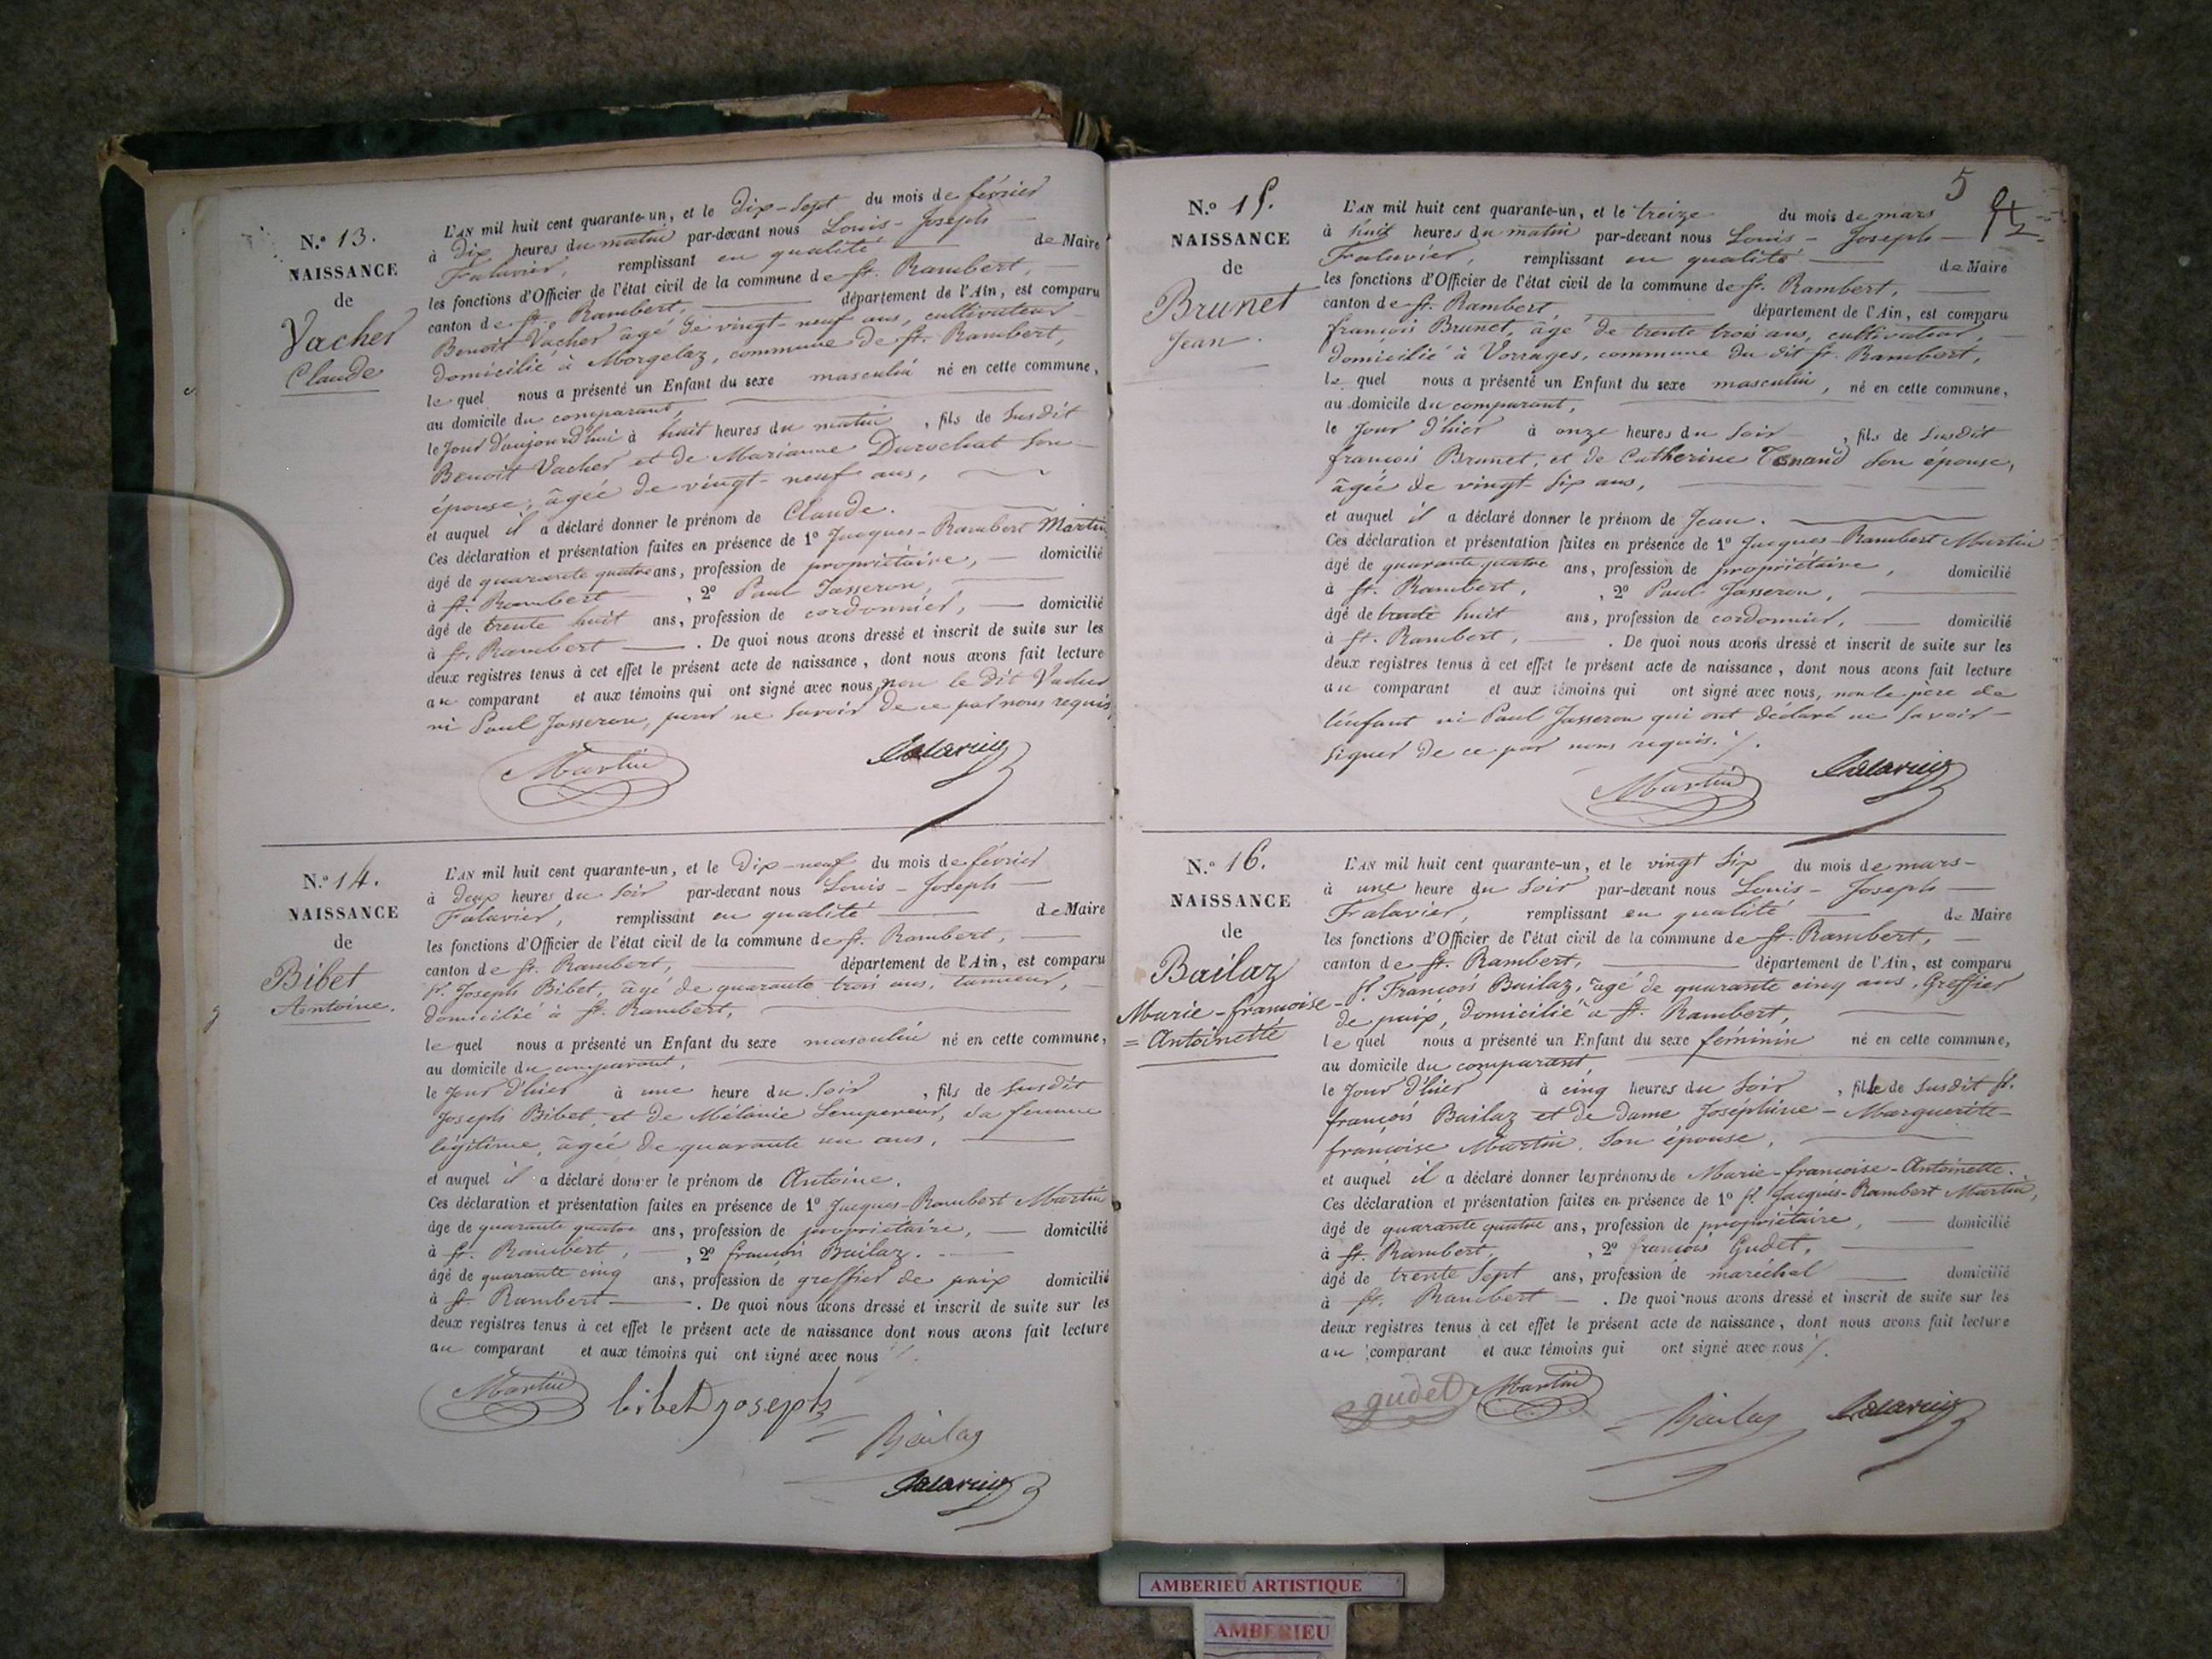 N.o 13.
NAISSANCE
de
Vacher
Claude
L'AN mil huit cent quarante-un, et le dix-sept du mois de février
à dix heures du matin par-devant nous Louis-Joseph
Falavier, remplissant en qualité de Maire
les fonctions d'Officier de l'état civil de la commune de St. Rambert,
canton de St. Rambert, département de l'Ain, est comparu
Benoit Vacher âgé de vingt-neuf ans, cultivateur
domicilié à Morgelaz, commune de St. Rambert,
le quel nous a présenté un Enfant du sexe masculin né en cette commune,
au domicile du comparant,
le jour d'aujourd'hui à huit heures du matin, fils de susdit
Benoit Vacher et de Marianne Durochat son
épouse, âgée de vingt-neuf ans,
et auquel il a déclaré donner le prénom de Claude.
Ces déclaration et présentation faites en présence de 1o Jacques-Rambert Martin
âgé de quarante quatre ans, profession de propriétaire, domicilié
à St. Rambert, 2o Paul Jasseron,
âgé de trente huit ans, profession de cordonnier, domicilié
à St. Rambert. De quoi nous avons dressé et inscrit de suite sur les
deux registres tenus à cet effet le présent acte de naissance, dont nous avons fait lecture
au comparant et aux témoins qui ont signé avec nous, non le dit Vacher
ni Paul Jasseron, pour ne savoir de ce par nous requis,
Martin
N.o 14.
NAISSANCE
de
Bibet
Antoine.
L'AN mil huit cent quarante-un, et le dix-neuf du mois de février
à deux heures du soir par-devant nous Louis-Joseph
Falavier, remplissant en qualité de Maire
les fonctions d'Officier de l'état civil de la commune de St. Rambert,
canton de St. Rambert, département de l'Ain, est comparu
Sr. Joseph Bibet, âgé de quarante trois ans, tanneur,
domicilié à St. Rambert,
le quel nous a présenté un Enfant du sexe masculin né en cette commune,
au domicile du comparant,
le jour d'hier à une heure du soir, fils de susdit
Joseph Bibet, et de Mélanie Lempereur, sa femme
légitime, âgée de quarante un ans,
et auquel il a déclaré donner le prénom de Antoine.
Ces déclaration et présentation faites en présence de 1o Jacques-Rambert Martin
âgé de quarante quatre ans, profession de propriétaire, domicilié
à St. Rambert, 2o françois Bailaz.
âgé de quarante cinq ans, profession de greffier de paix domicilié
à St. Rambert. De quoi nous avons dressé et inscrit de suite sur les
deux registres tenus à cet effet le présent acte de naissance dont nous avons fait lecture
au comparant et aux témoins qui ont signé avec nous
Martin bibet joseph
Bailaz
5
N.o 15.
NAISSANCE
de
Brunet
Jean.
L'AN mil huit cent quarante-un, et le treize du mois de mars
à huit heures du matin par-devant nous Louis-Joseph
Falavier, remplissant en qualité de Maire
les fonctions d'Officier de l'état civil de la commune de St. Rambert,
canton de St. Rambert, département de l'Ain, est comparu
françois Brunet, âgé de trente trois ans, cultivateur,
domicilié à Vorrages, commune du dit St. Rambert,
le quel nous a présenté un Enfant du sexe masculin, né en cette commune,
au domicile du comparant,
le jour d'hier à onze heures du soir, fils de susdit
françois Brunet, et de Catherine Tenand son épouse,
âgée de vingt-six ans,
et auquel il a déclaré donner le prénom de Jean.
Ces déclaration et présentation faites en présence de 1o Jacques-Rambert Martin
âgé de quarante quatre ans, profession de propriétaire, domicilié
à St. Rambert, 2o Paul Jasseron,
âgé de trente huit ans, profession de cordonnier, domicilié
à St. Rambert,. De quoi nous avons dressé et inscrit de suite sur les
deux registres tenus à cet effet le présent acte de naissance, dont nous avons fait lecture
au comparant et aux témoins qui ont signé avec nous, non le père de
l'enfant ni Paul Jasseron qui ont déclaré ne savoir
signer de ce par nous requis.
Martin
N.o 16.
NAISSANCE
de
Bailaz
Marie-françoise-
=Antoinette
L'AN mil huit cent quarante-un, et le vingt six du mois de mars
à une heure du soir par-devant nous Louis-Joseph
Falavier, remplissant en qualité de Maire
les fonctions d'Officier de l'état civil de la commune de St. Rambert,
canton de St. Rambert, département de l'Ain, est comparu
Sr. François Bailaz, âgé de quarante cinq ans, Greffier
de paix, domicilié à St. Rambert,
le quel nous a présenté un Enfant du sexe féminin né en cette commune,
au domicile du comparant,
le jour d'hier à cinq heures du soir, fille de susdit Sr.
françois Bailaz et de dame Joséphine-Marguerite-
françoise Martin son épouse,
et auquel il a déclaré donner les prénoms de Marie-françoise-Antoinette.
Ces déclaration et présentation faites en présence de 1o Sr. Jacques-Rambert Martin,
âgé de quarante quatre ans, profession de propriétaire, domicilié
à St. Rambert, 2o françois Gudet,
âgé de trente sept ans, profession de maréchal domicilié
à St. Rambert. De quoi nous avons dressé et inscrit de suite sur les
deux registres tenus à cet effet le présent acte de naissance, dont nous avons fait lecture
au comparant et aux témoins qui ont signé avec nous
gudet Martin
Bailaz
AMBERIEU ARTISTIQUE
AMBERIEU